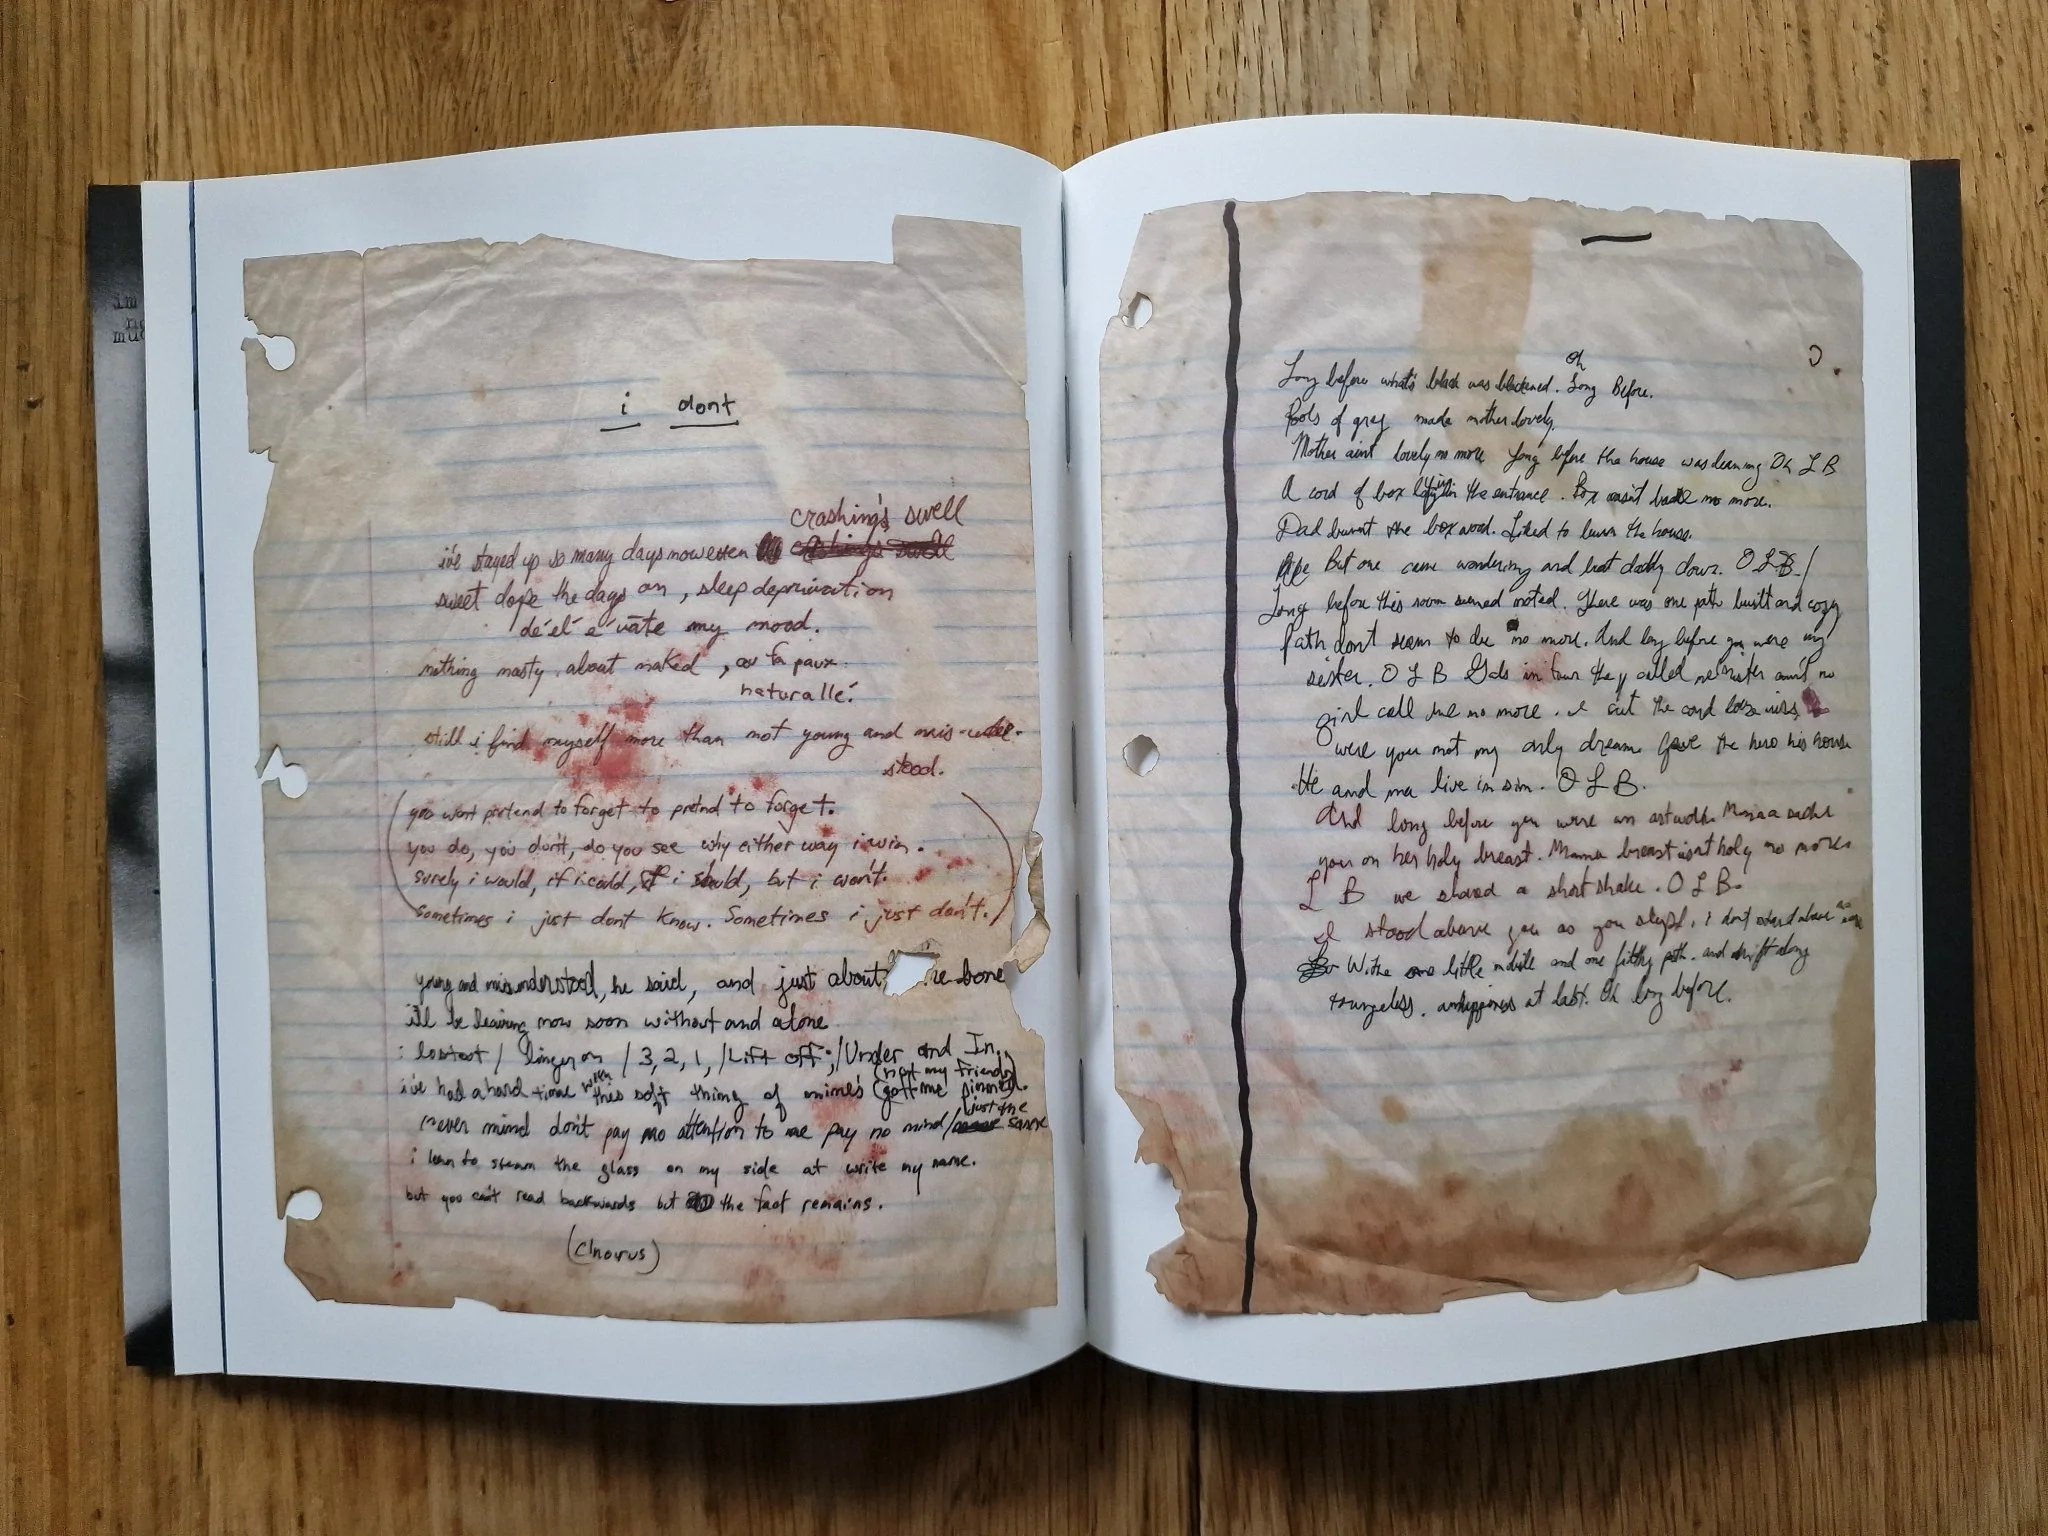 im
i dont
crashing's swell
i've stayed up so many days now even crashing's swell
sweet dope the days on, sleep deprivation
de´el´e´vāte my mood.
nothing nasty about naked, or fa paux
naturallé.
still i find myself more than not young and mis-
stood.
(you wont pretend to forget to pretnd to forget.
you do, you don't, do you see why either way i win.
surely i would, if i could, if i should, but i won't.
sometimes i just dont know. Sometimes i just don't.)
young and misunderstood, he said, and just about bone
i'll be leaving now soon without and alone
i lowtest / linger on / 3, 2, 1, / Lift off; / Under and In.
(not my friends)
i've had a hard time with this soft thing of mime's (gott me pinned.
just the
never mind don't pay no attention to me pay no mind / same
i lean to steam the glass on my side at write my name.
but you can't read backwards but the fact remains.
(chorus)
Oh
Long before what's black was blackened. Long Before.
Pools of grey made mother lovely.
Mother aint lovely no more Long before the house was leaning Oh L B
A cord of box in the entrance. Box wasn't no more.
Dad burnt the box wood. Liked to burn the house.
But one came wandering and beat daddy down. O L B /
Long before this room seemed rooted. There was one path built and cozy
Path dont seem to die no more. And long before you were my
sister. O L B Gods in town they called me sister ain't no
girl call me no more. I cut the cord
were you not my only dream. Gave the hero his house
He and ma live in sin. O L B.
And long before you were an artwork. Mama
you on her holy breast. Mama breast isnt holy no more
L B we shared a short shake. O L B.
I stood above you as you slept. i dont stand above no more
With one little and one filthy path. and drift along
at last. Oh long before.